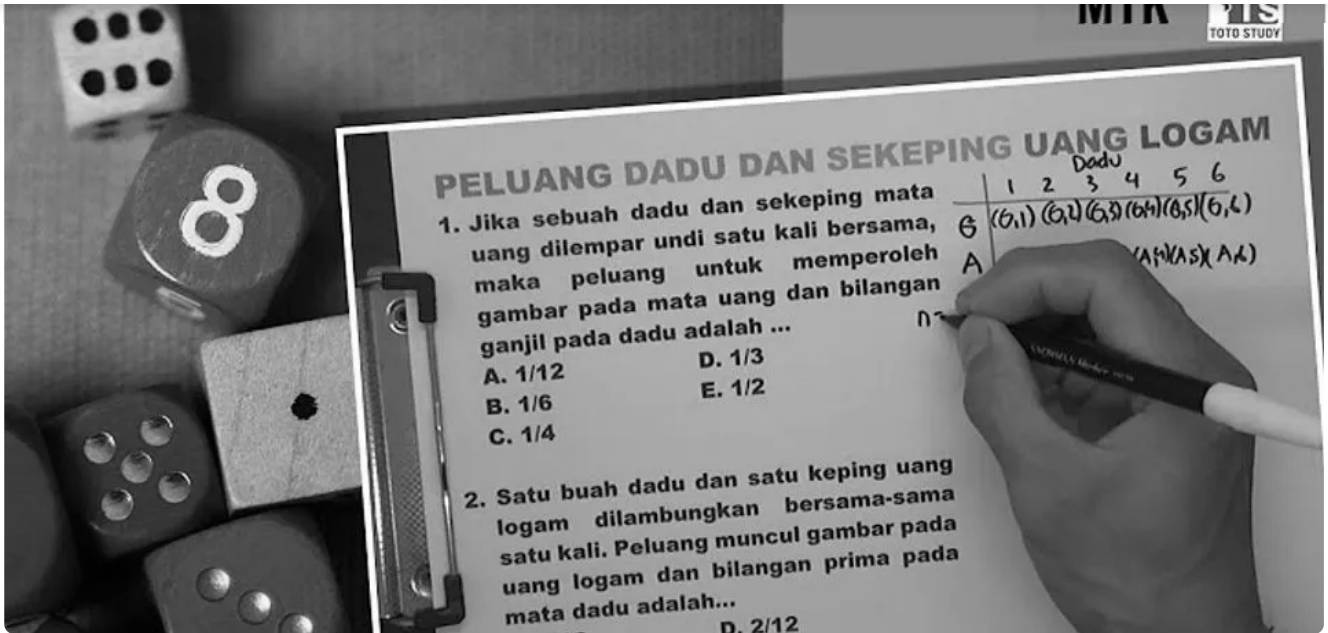 TOTO STUDY
PELUANG DADU DAN SEKEPING UANG LOGAM
1. Jika sebuah dadu dan sekeping mata
uang dilempar undi satu kali bersama,
maka peluang untuk memperoleh
gambar pada mata uang dan bilangan
ganjil pada dadu adalah ...
A. 1/12
D. 1/3
B. 1/6
E. 1/2
C. 1/4
Dadu
1 2 3 4 5 6
G (G,1) (G,2) (G,3) (G,4) (G,5) (G,6)
A (A,4) (A,5) (A,6)
n=
2. Satu buah dadu dan satu keping uang
logam dilambungkan bersama-sama
satu kali. Peluang muncul gambar pada
uang logam dan bilangan prima pada
mata dadu adalah...
D. 2/12
8